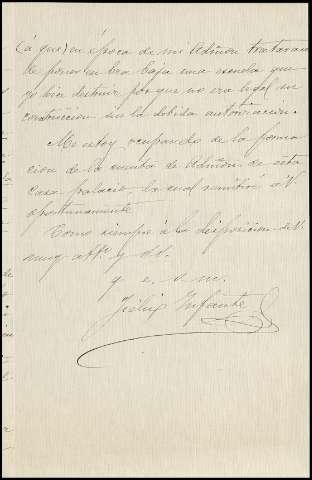 (á que) en época de mi Admón trataran
de poner en esa baja una rueda que
yo hice destruir porque no era legal su
construccion sin la debida autorizacion.
Me estoy ocupando de la forma
cion de la cuenta de Admón. de esta
Casa palacio, la cual remitiré á V.
oportunamente
Como siempre á la disposicion de V.
muy att.º y s.s.
q. e. s. m.
Felix Infante